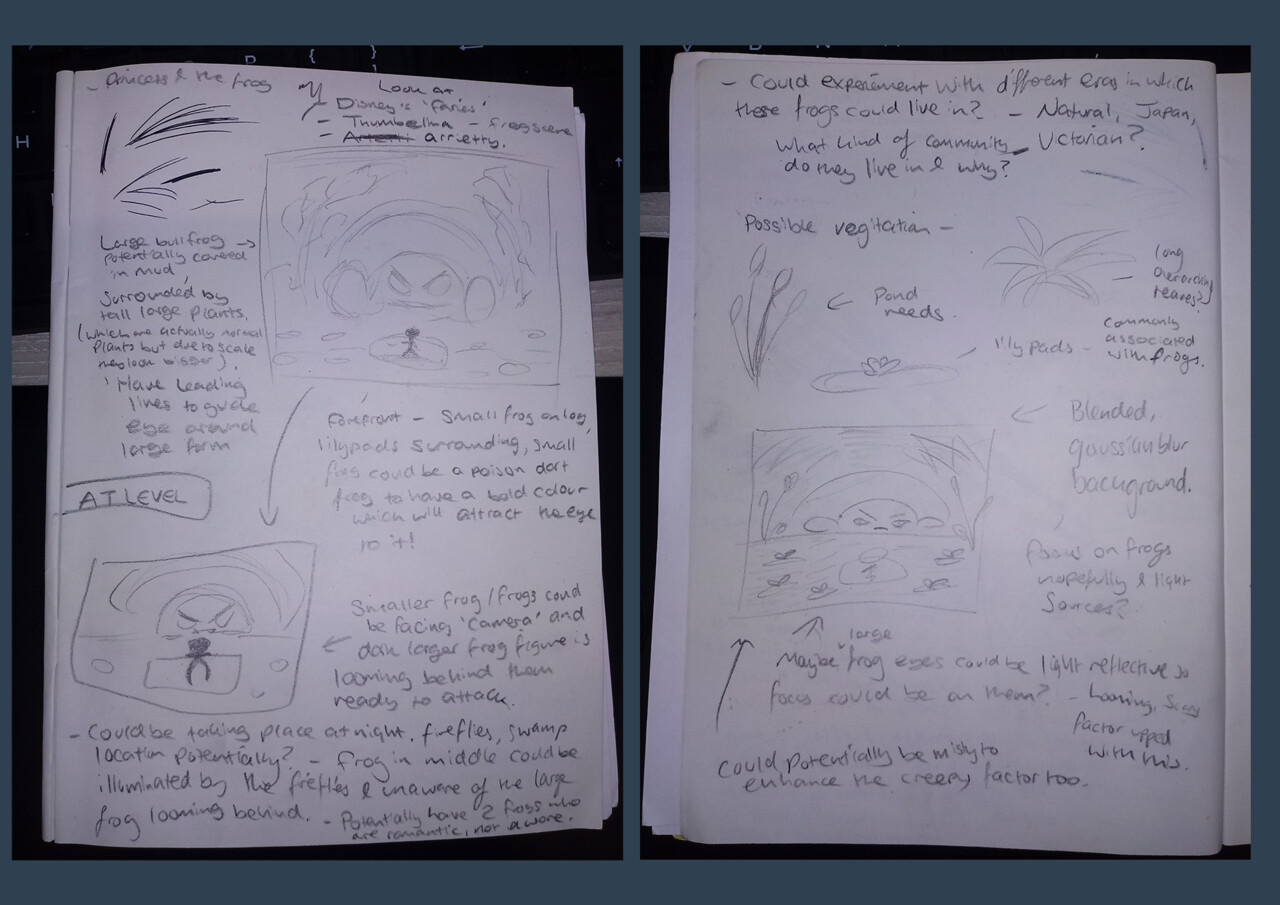 - Princess & the frog
Look at
- Disney's 'Faries'
- Thumbelina - frog scene
- Arrietty.
Large bullfrog →
potentially covered
in mud,
Surrounded by
tall large plants.
(which are actually normal
plants but due to scale
they look bigger).
Have leading
lines to guide
eye around
large form
AT LEVEL
Forefront - Small frog on log,
lilypads surrounding, small
frog could be a poison dart
frog to have a bold colour
which will attract the eye
to it!
Smaller frog/frogs could
be facing 'camera' and
dark larger frog figure is
looming behind them
ready to attack.
- Could be taking place at night, fireflies, swamp
location potentially? - Frog in middle could be
illuminated by the fireflies & unaware of the large
frog looming behind. - Potentially have 2 frogs who
are romantic, not aware.
- Could experiment with different eras in which
these frogs could live in? - Natural, Japan,
Victorian?
What kind of community
do they live in & why?
Possible vegitation -
← Pond
reeds.
long
overarching
leaves?
lilypads - commonly
associated
with frogs.
← Blended,
gaussian blur
background.
Focus on frogs
hopefully & light
sources?
Maybe large frog eyes could be light reflective so
focus could be on them? - Looming, Scary
factor upped
with this.
Could potentially be misty to
enhance the creepy factor too.